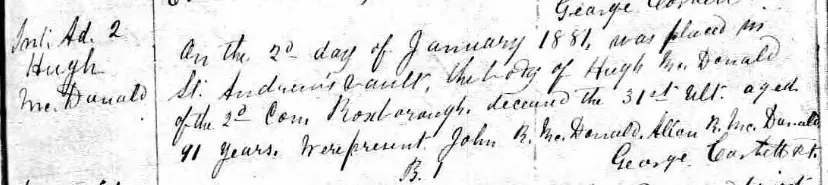 George Corbett
Int. Ad. 2
Hugh
Mc.Donald
On the 2d day of January 1881, was placed in
St. Andrew's vault, the body of Hugh Mc Donald
of the 2d Con Roxborough. deceased the 31st ult. aged
91 years. Were present. John R. Mc.Donald. Allen R. Mc.Donald
George Corbett
B. 1